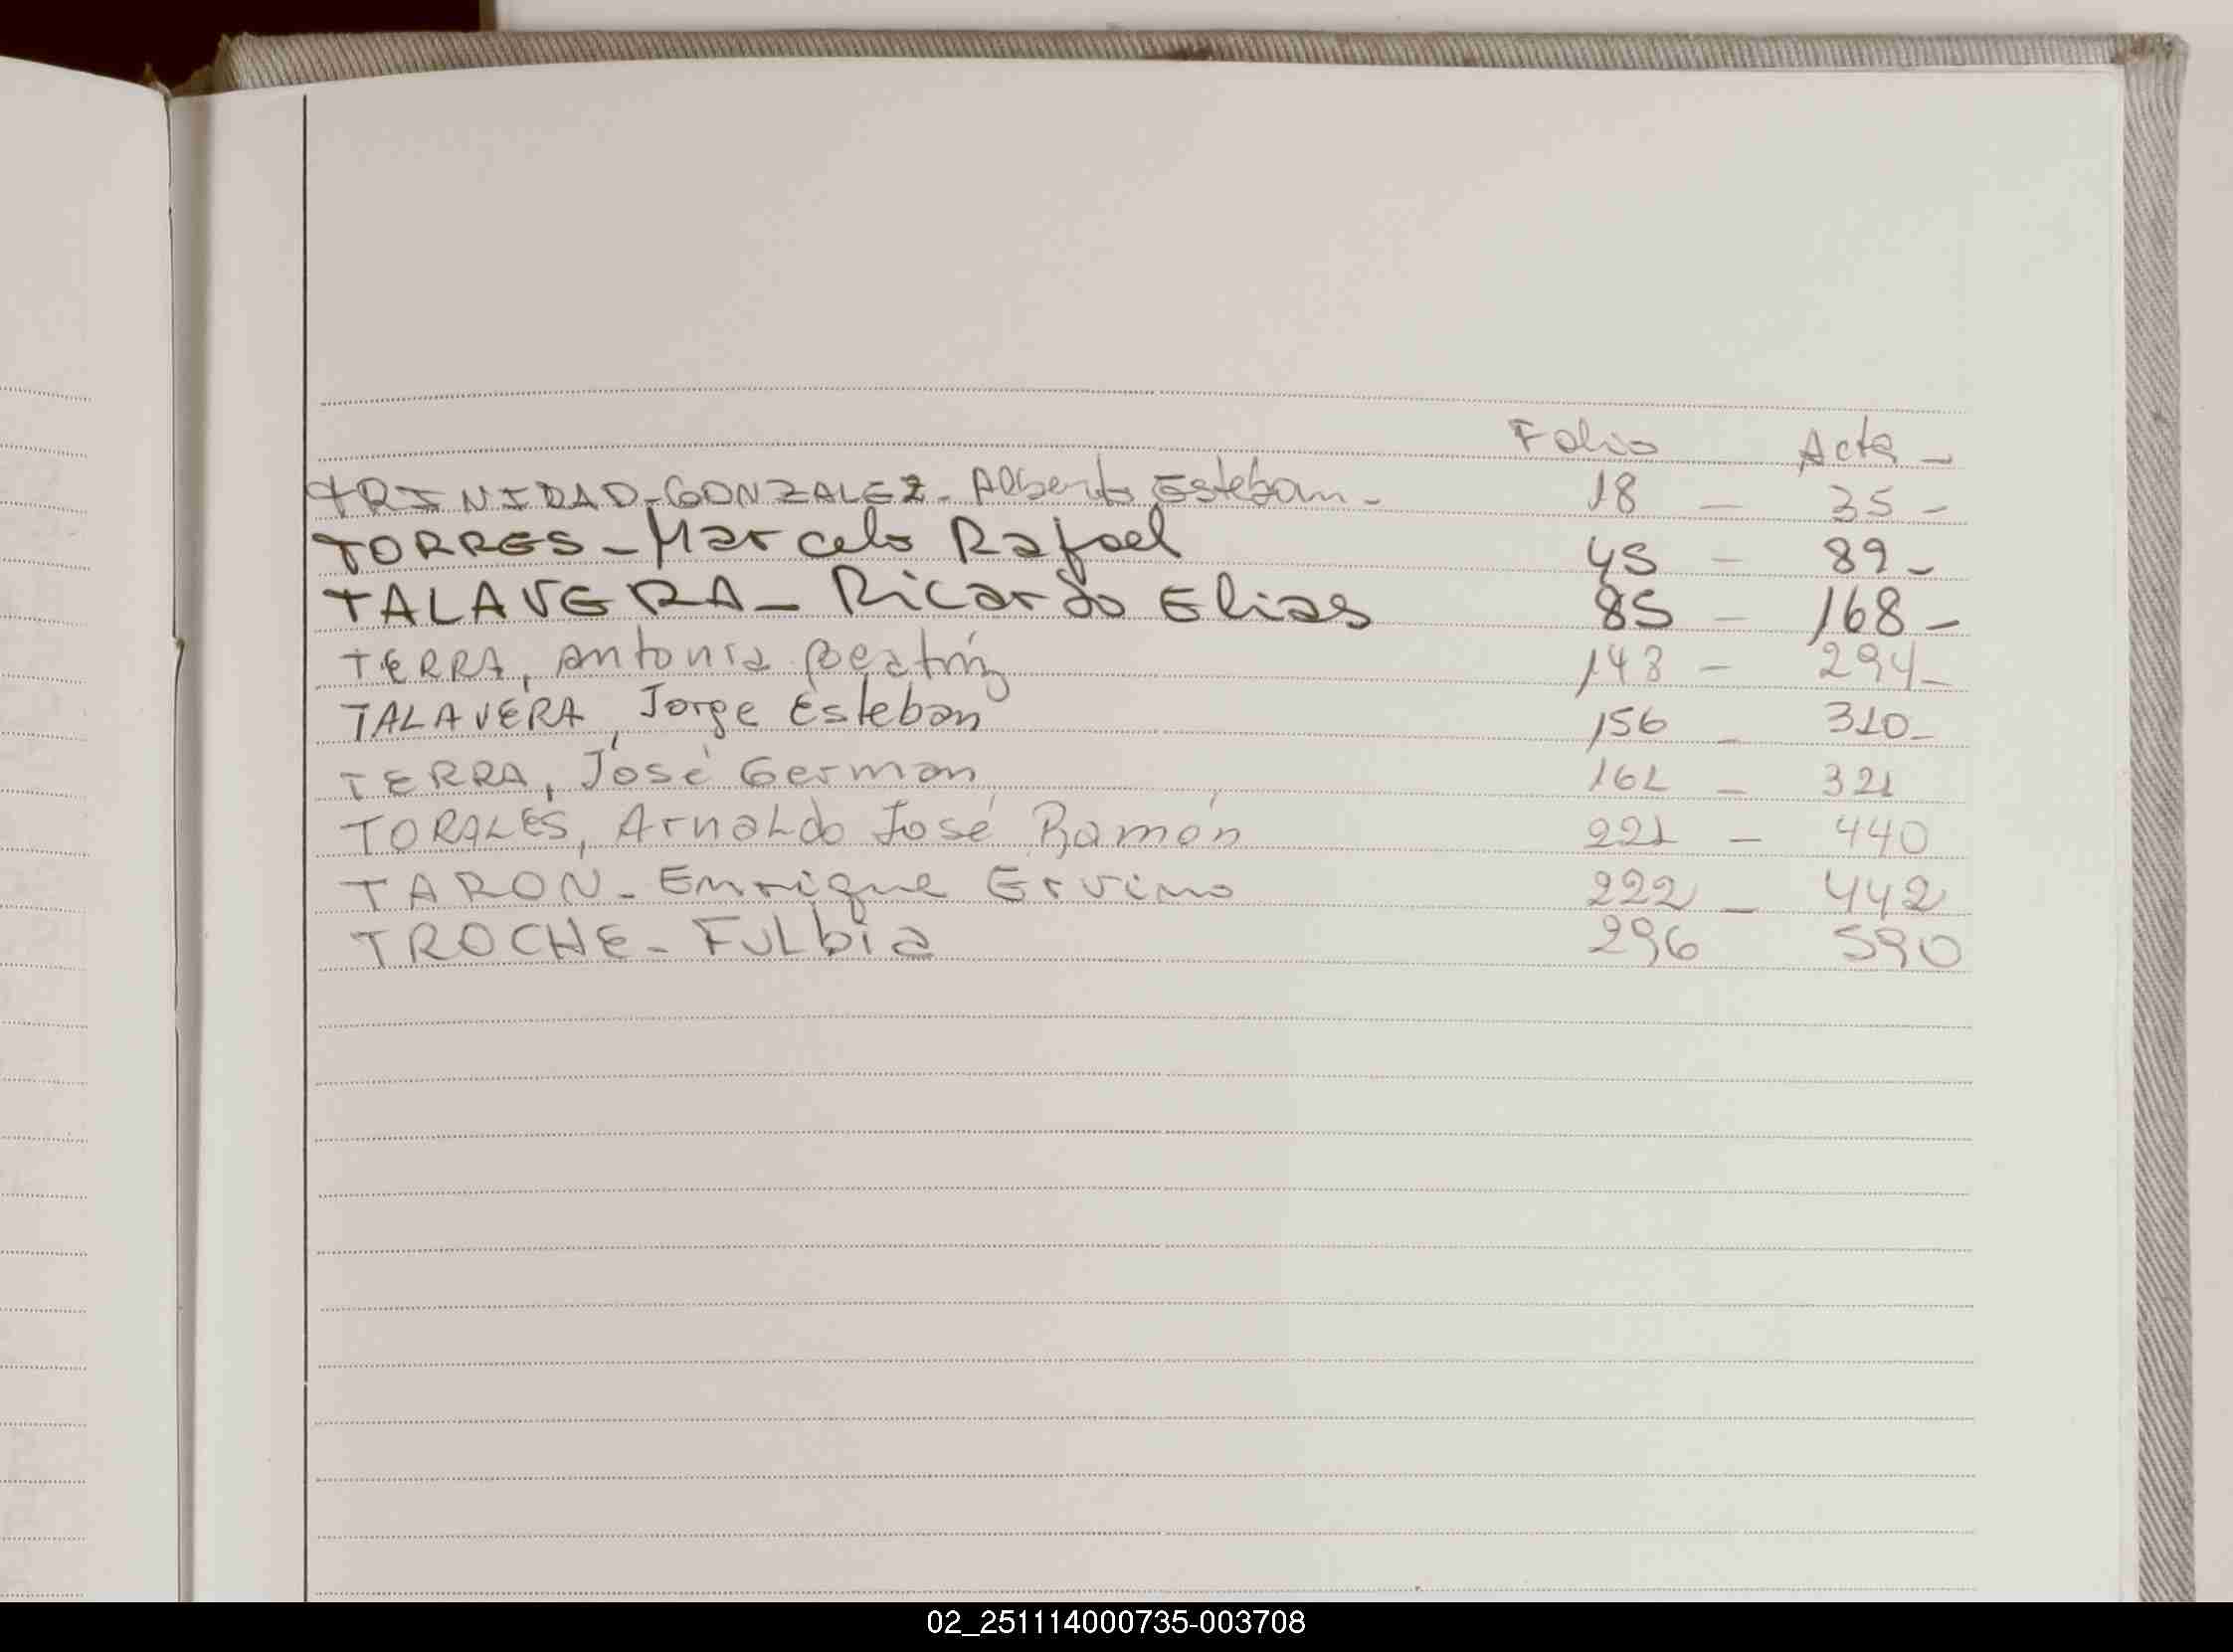 Folio Acta -
TRINIDAD - GONZALEZ - Alberto Esteban - 18 - 35 -
TORRES - Marcelo Rafael 45 - 89 -
TALAVERA - Ricardo Elias 85 - 168 -
TERRA, Antonia Beatríz 148 - 294 -
TALAVERA, Jorge Esteban 156 - 310 -
TERRA, José German 162 - 321
TORALES, Arnaldo José Ramón 221 - 440
TARON - Enrique Ervino 222 - 442
TROCHE - Fulbia 296 590
02_251114000735-003708